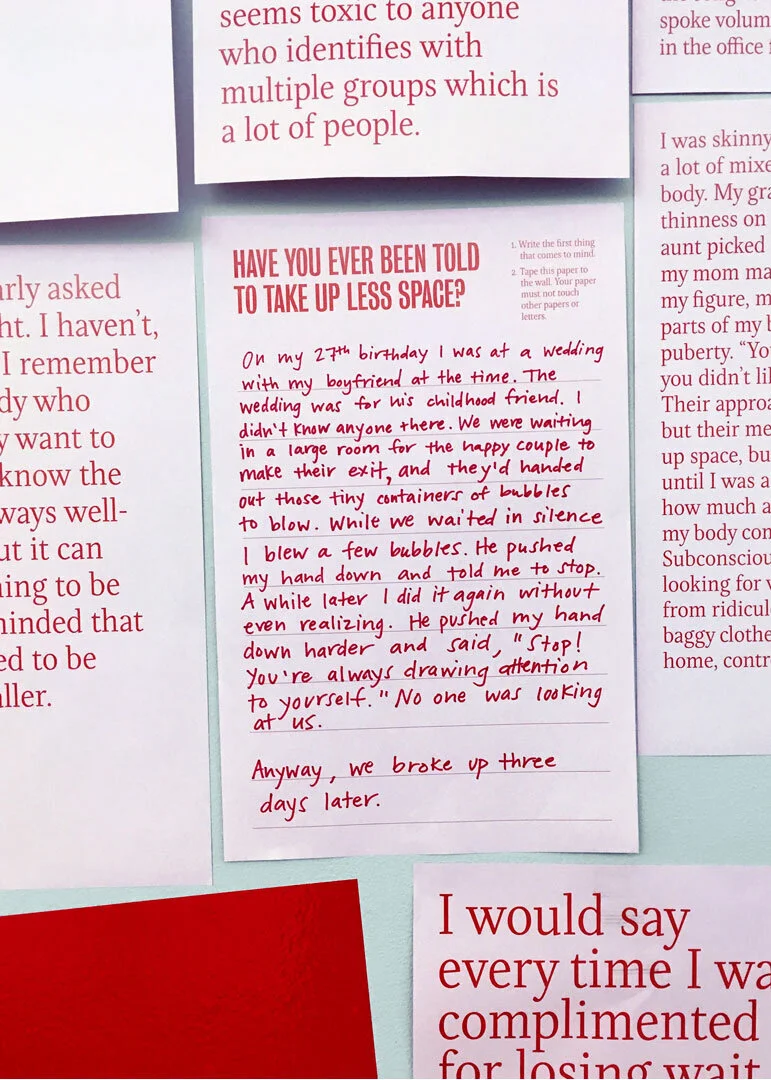 seems toxic to anyone
who identifies with
multiple groups which is
a lot of people.
spoke volum
in the office
arly asked
ht. I haven't,
I remember
dy who
y want to
know the
ways well-
ut it can
ning to be
minded that
ed to be
aller.
HAVE YOU EVER BEEN TOLD
TO TAKE UP LESS SPACE?
1. Write the first thing
that comes to mind.
2. Tape this paper to
the wall. Your paper
must not touch
other papers or
letters.
On my 27th birthday I was at a wedding
with my boyfriend at the time. The
wedding was for his childhood friend. I
didn't know anyone there. We were waiting
in a large room for the happy couple to
make their exit, and they'd handed
out those tiny containers of bubbles
to blow. While we waited in silence
I blew a few bubbles. He pushed
my hand down and told me to stop.
A while later I did it again without
even realizing. He pushed my hand
down harder and said, "Stop!
You're always drawing attention
to yourself." No one was looking
at us.
Anyway, we broke up three
days later.
I was skinny
a lot of mixe
body. My gra
thinness on
aunt picked
my mom ma
my figure, m
parts of my b
puberty. "Yo
you didn't li
Their approa
but their me
up space, bu
until I was a
how much a
my body con
Subconsciou
looking for v
from ridicul
baggy clothe
home, contr
I would say
every time I wa
complimented
for losing wait